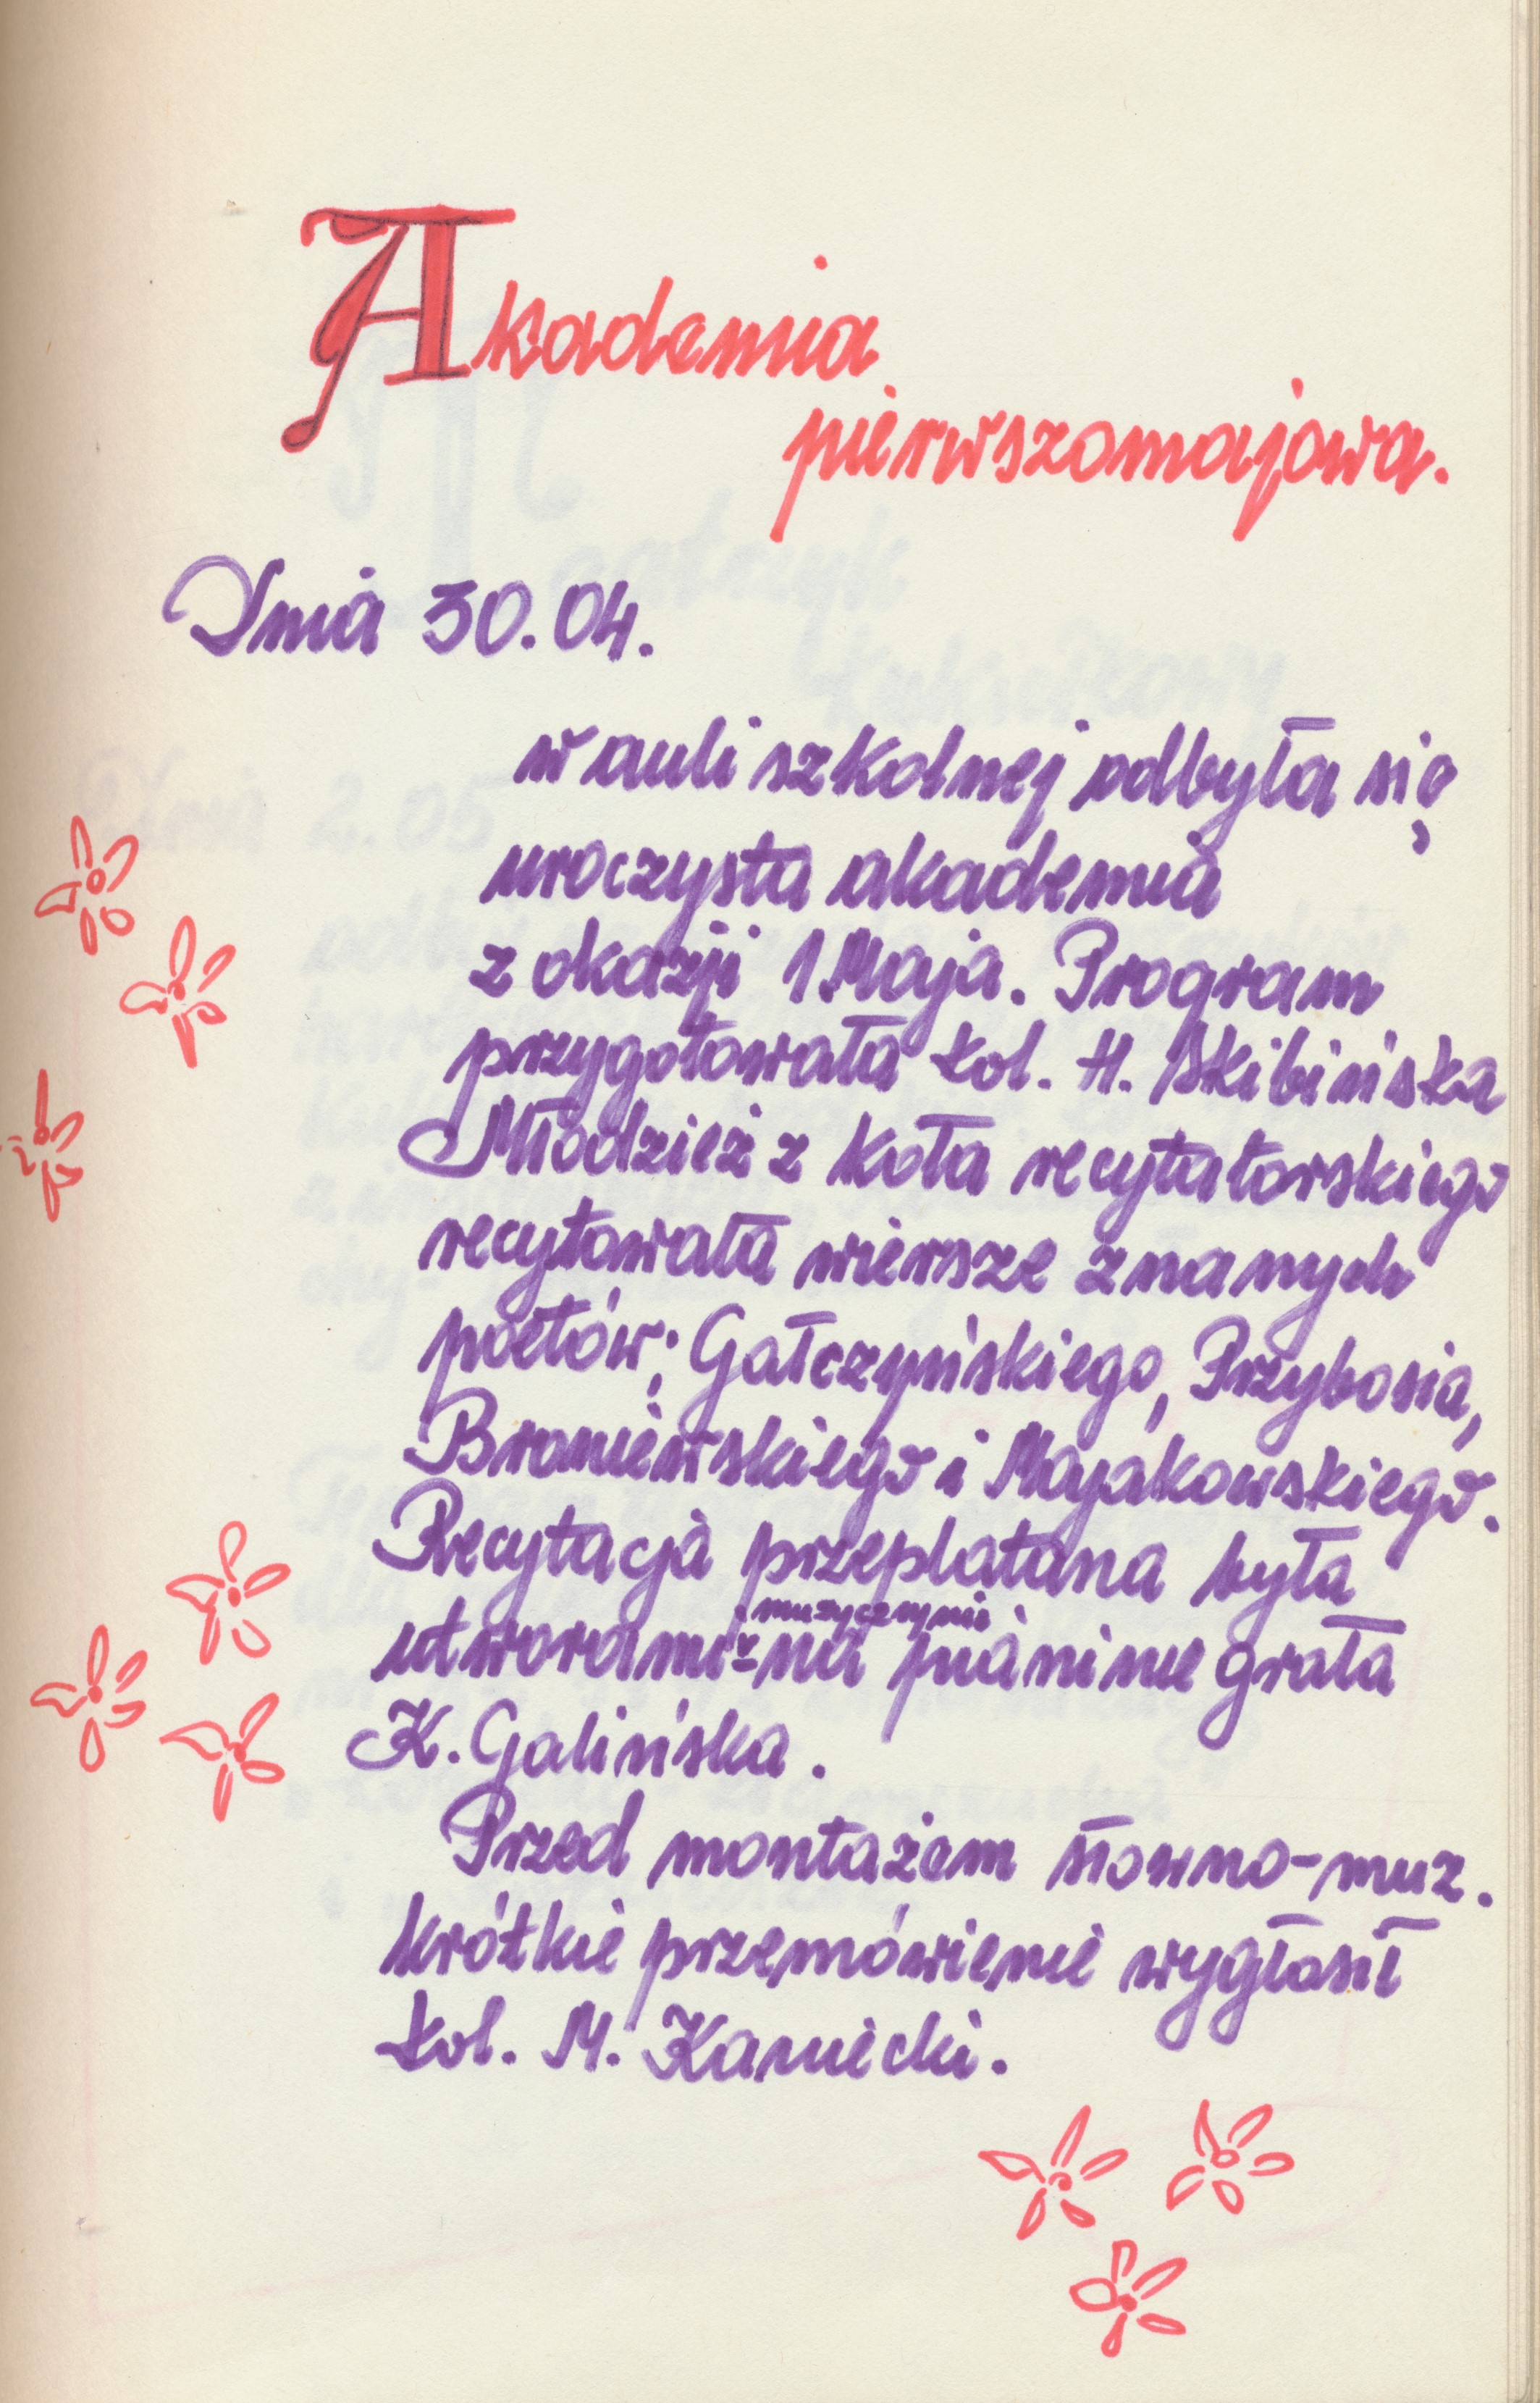 Akademia
pierwszomajowa.
Dnia 30.04.
w auli szkolnej odbyła się
uroczysta akademia
z okazji 1 Maja. Program
przygotowała kol. H. Skibińska
Młodzież z koła recytatorskiego
recytowała wiersze znanych
poetów; Gałczyńskiego, Przybosia,
Broniewskiego i Majakowskiego.
Recytacja przeplatana była
muzycznymi
utworami - na pianinie grała
K. Galińska.
Przed montażem słowno-muz.
krótkie przemówienie wygłosił
kol. M. Kaniecki.